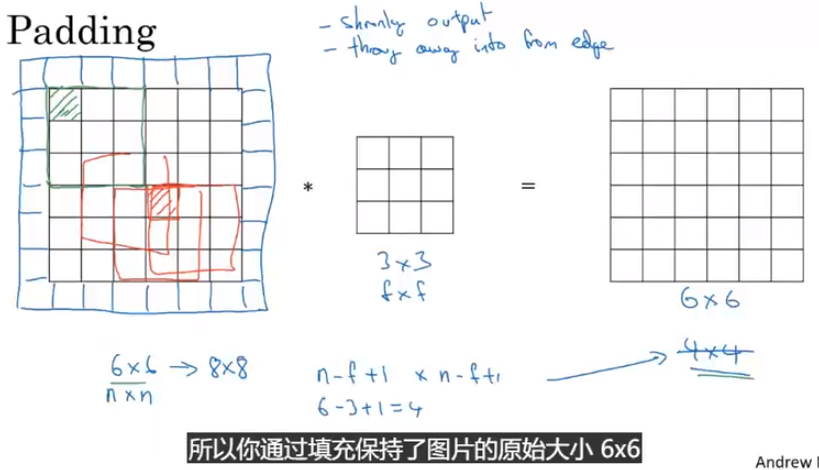 Padding
- shrinky output
- throw away info from edge
*
=
3×3
f×f
6×6
6×6 → 8×8
n×n
n-f+1 × n-f+1
6-3+1=4
4×4
所以你通过填充保持了图片的原始大小 6x6
Andrew